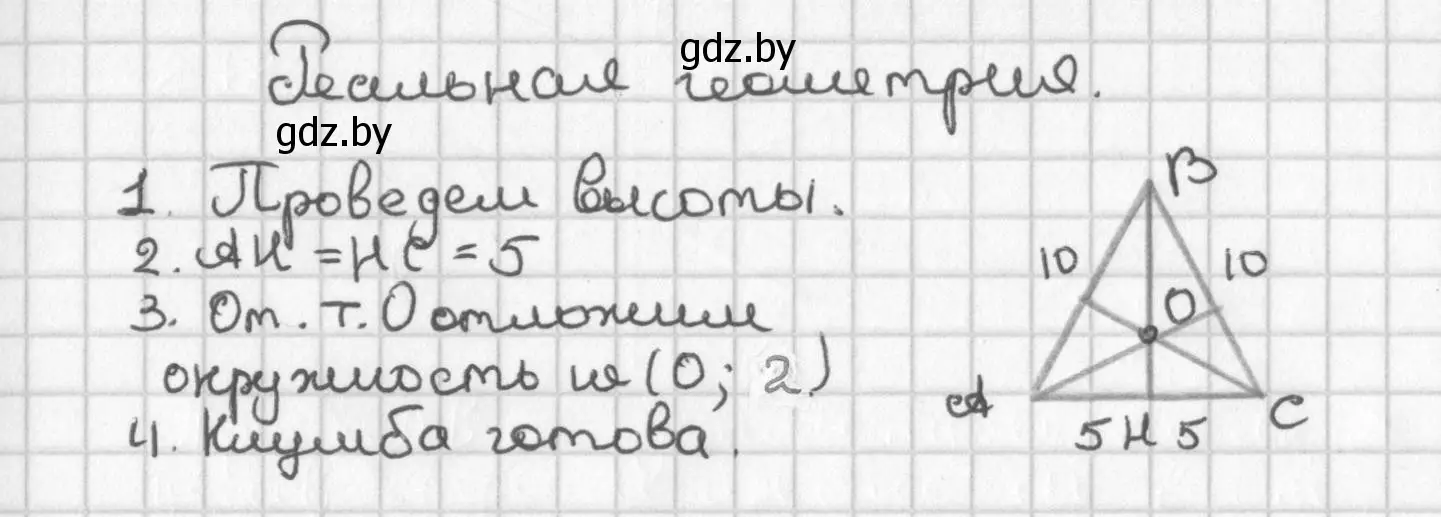 Реальная геометрия.
gdz.by
gdz.by
1. Проведем высоты.
2. АН = НС = 5
3. От. т. О отложим
окружность w (О; 2)
4. Клумба готова.
В
10
10
О
А
5 Н 5
С